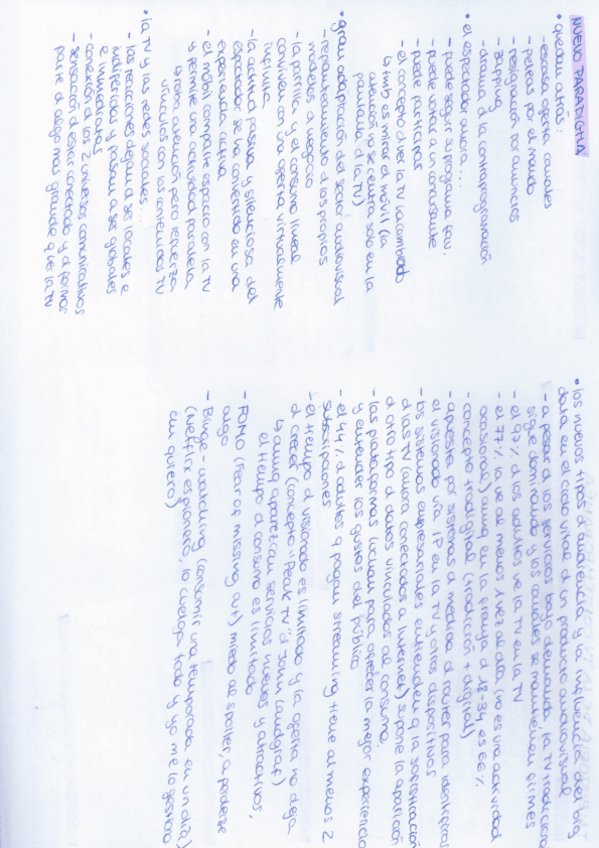 NUEVO PARADIGMA
• quedan atrás:
- escasa oferta canales
- peleas por el mando
- resignación por anuncios
- zapping
- drama d la contraprogramación
• el espectador ahora...
- puede seguir su programa fav.
- puede votar a un concursante
- puede participar
- el concepto d ver la TV ha cambiado
↳ tmb es mirar el móvil (la
atención no se centra solo en la
pantalla d la TV)
• gran adaptación del sector audiovisual
- replanteamiento d los propios
modelos d negocio
- la parrilla y el consumo lineal
conviven con una oferta virtualmente
infinita
- la actitud pasiva y silenciosa del
espectador se ha convertido en una
experiencia activa
- el móbil comparte espacio con la TV
y permite una actividad paralela
↳ roba atención pero refuerza
vínculos con los contenidos TV
• la TV y las redes sociales...
- las reacciones dejan d ser locales e
indiferidas y pasan a ser globales
e inmediatas
- conexión d los 2 universos comunicativos
- sensación d estar conectado y d formar
parte d algo más grande que la TV
• los nuevos tipos d audiencia y la influencia del big
data en el ciclo vital d un producto audiovisual
- a pesar d los servicios bajo demanda, la TV tradicional
sigue dominando y los canales se mantienen firmes
- el 97% d los adultos ve la TV en la TV
- el 77% la ve al menos 1 vez al día (no es una actividad
ocasional) aunq en la franja d 18-34 es 66%
- concepto tradigital (tradición + digital)
- apuesta por sistemas d medida d router para identificar
el visionado vía IP en la TV y otros dispositivos
- los sistemas empresariales entienden q la sofisticación
d las TV (ahora conectadas a Internet) supone la aparición
d otro tipo d datos vinculados al consumo
- las plataformas luchan para ofrecer la mejor experiencia
y entender los gustos del público
- el 44% d adultos q pagan streaming tiene al menos 2
subscripciones
- el tiempo d visionado es limitado y la oferta no deja
d crecer (concepto "Peak TV" d John Landgraf)
↳ aunq aparezcan servicios nuevos y atractivos,
el tiempo d consumo es limitado
- FOMO (Fear of missing out) miedo al spoiler, a perderse
algo
- Binge-watching (consumir una temporada en un día)
(Netflix es pionero, lo cuelga todo y yo me lo gestiono
cm quiero)